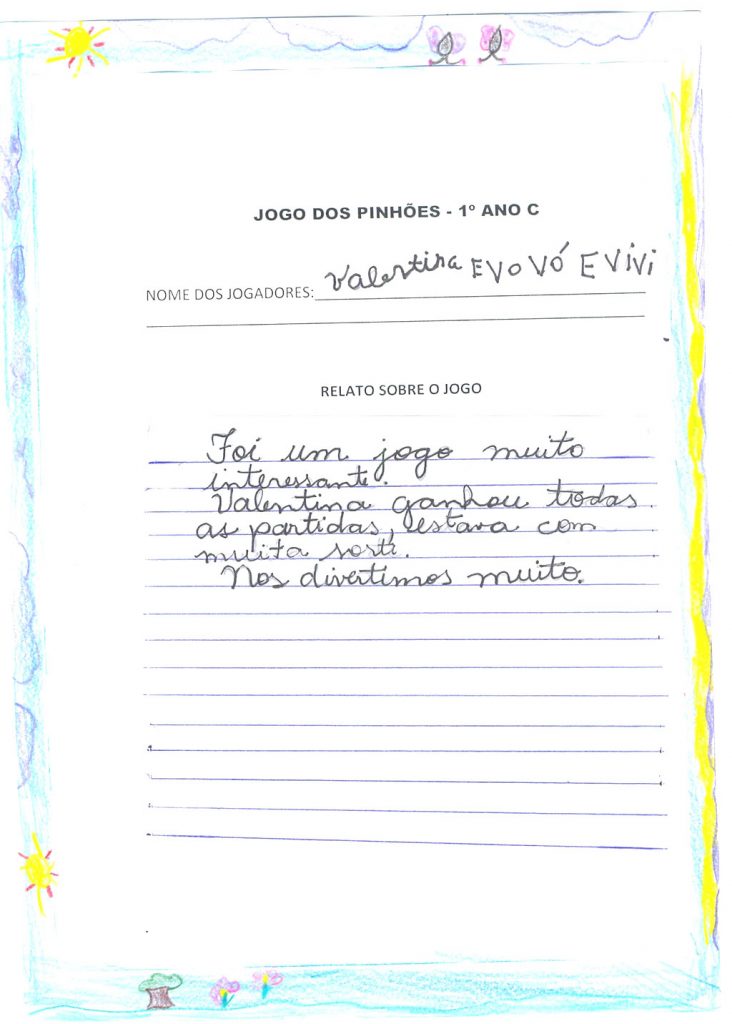 JOGO DOS PINHÕES - 1º ANO C
NOME DOS JOGADORES: Valentina E VOVÓ E ViVi
RELATO SOBRE O JOGO
Foi um jogo muito
interessante.
Valentina ganhou todas
as partidas, estava com
muita sorte.
Nos divertimos muito.